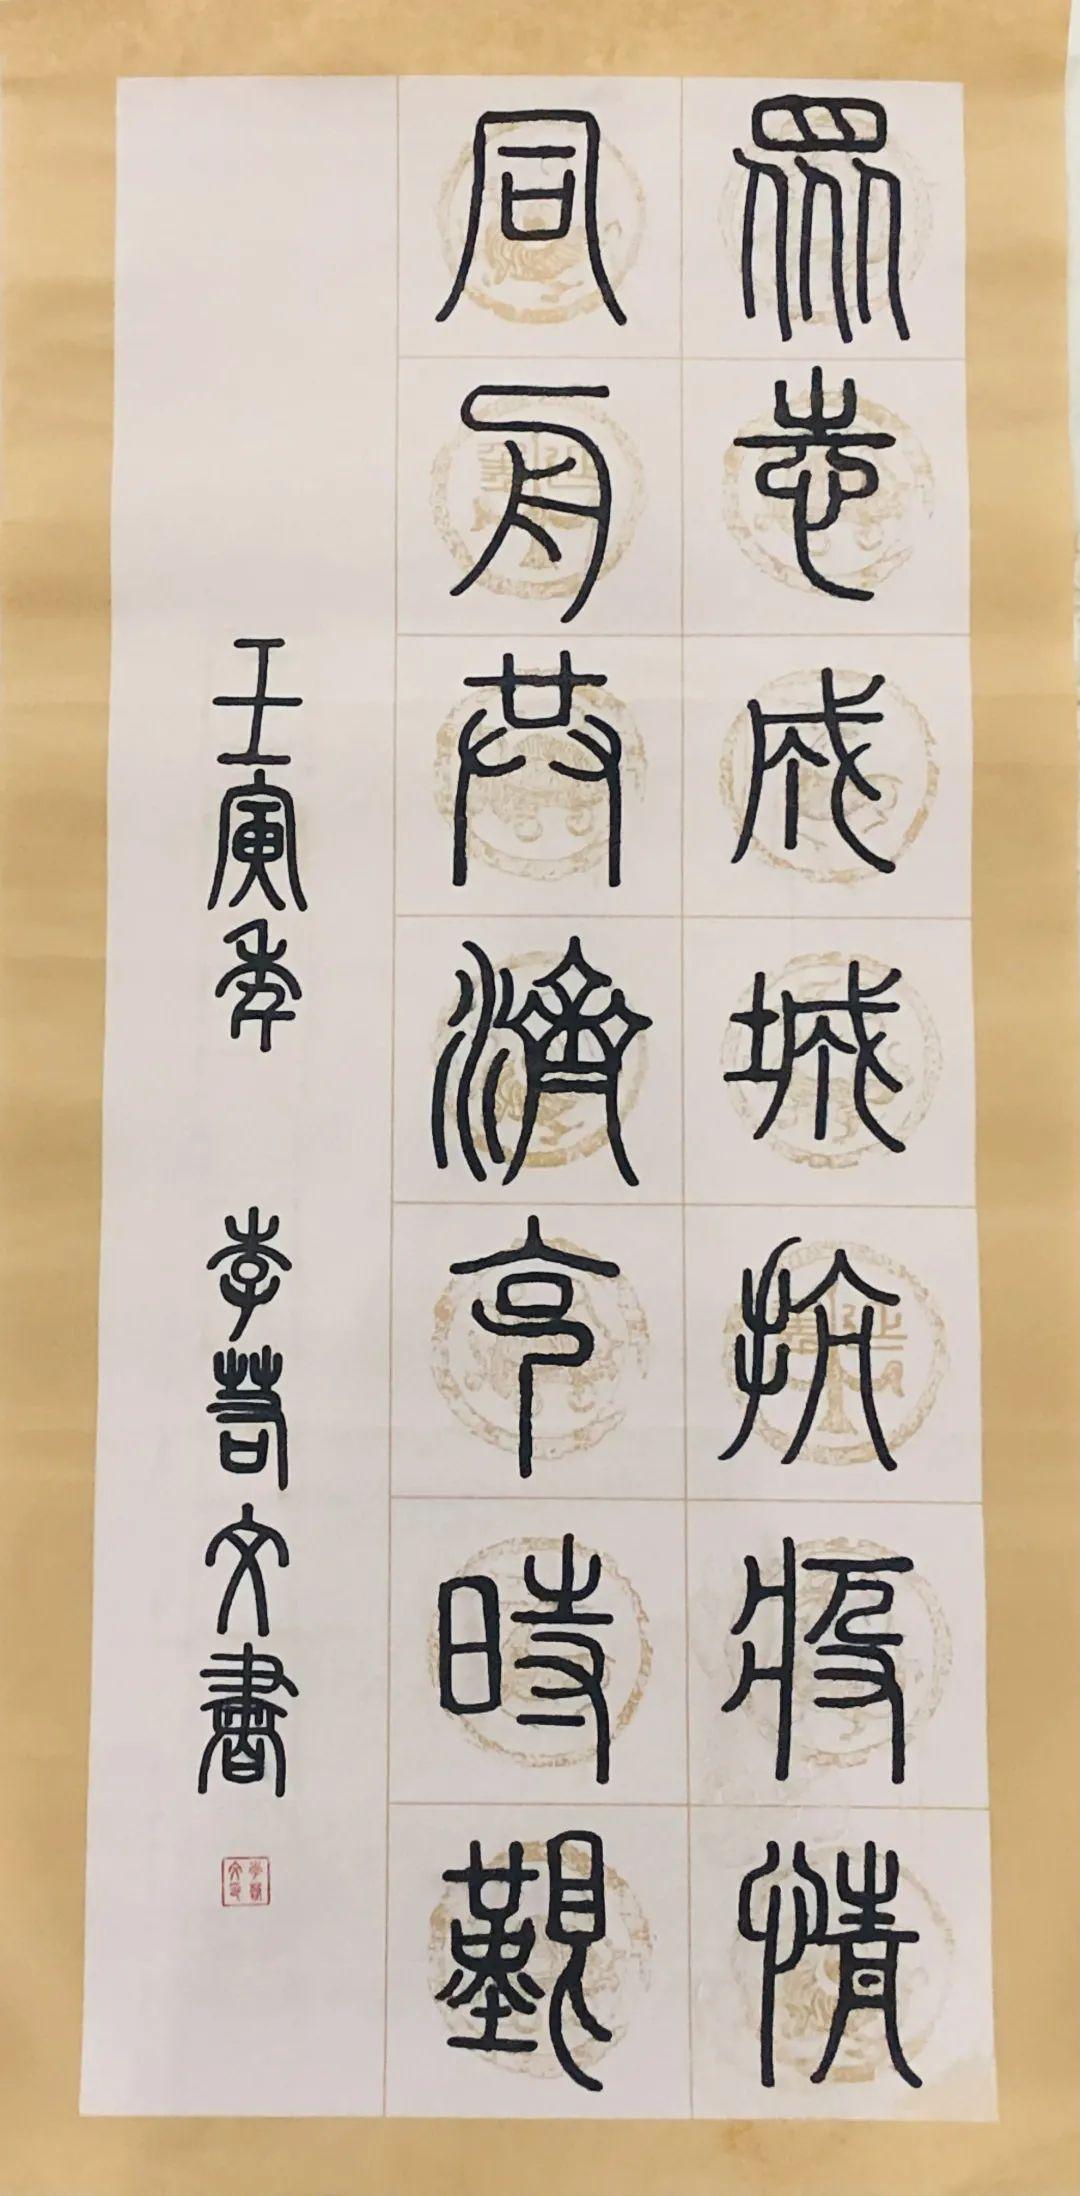 眾志成城抗疫情
同舟共濟克時艱
壬寅年 李若文書